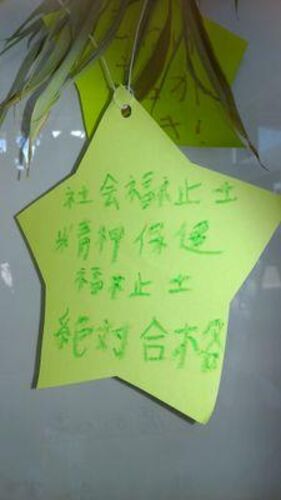 社会福祉士
精神保健
福祉士
絶対合格